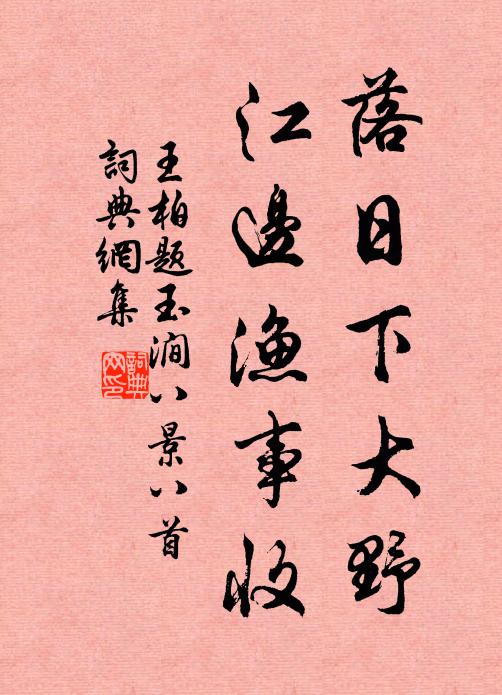 落日下大野
江邊漁事收
王柏題玉澗八景八首
詞典網集
詞典
网印